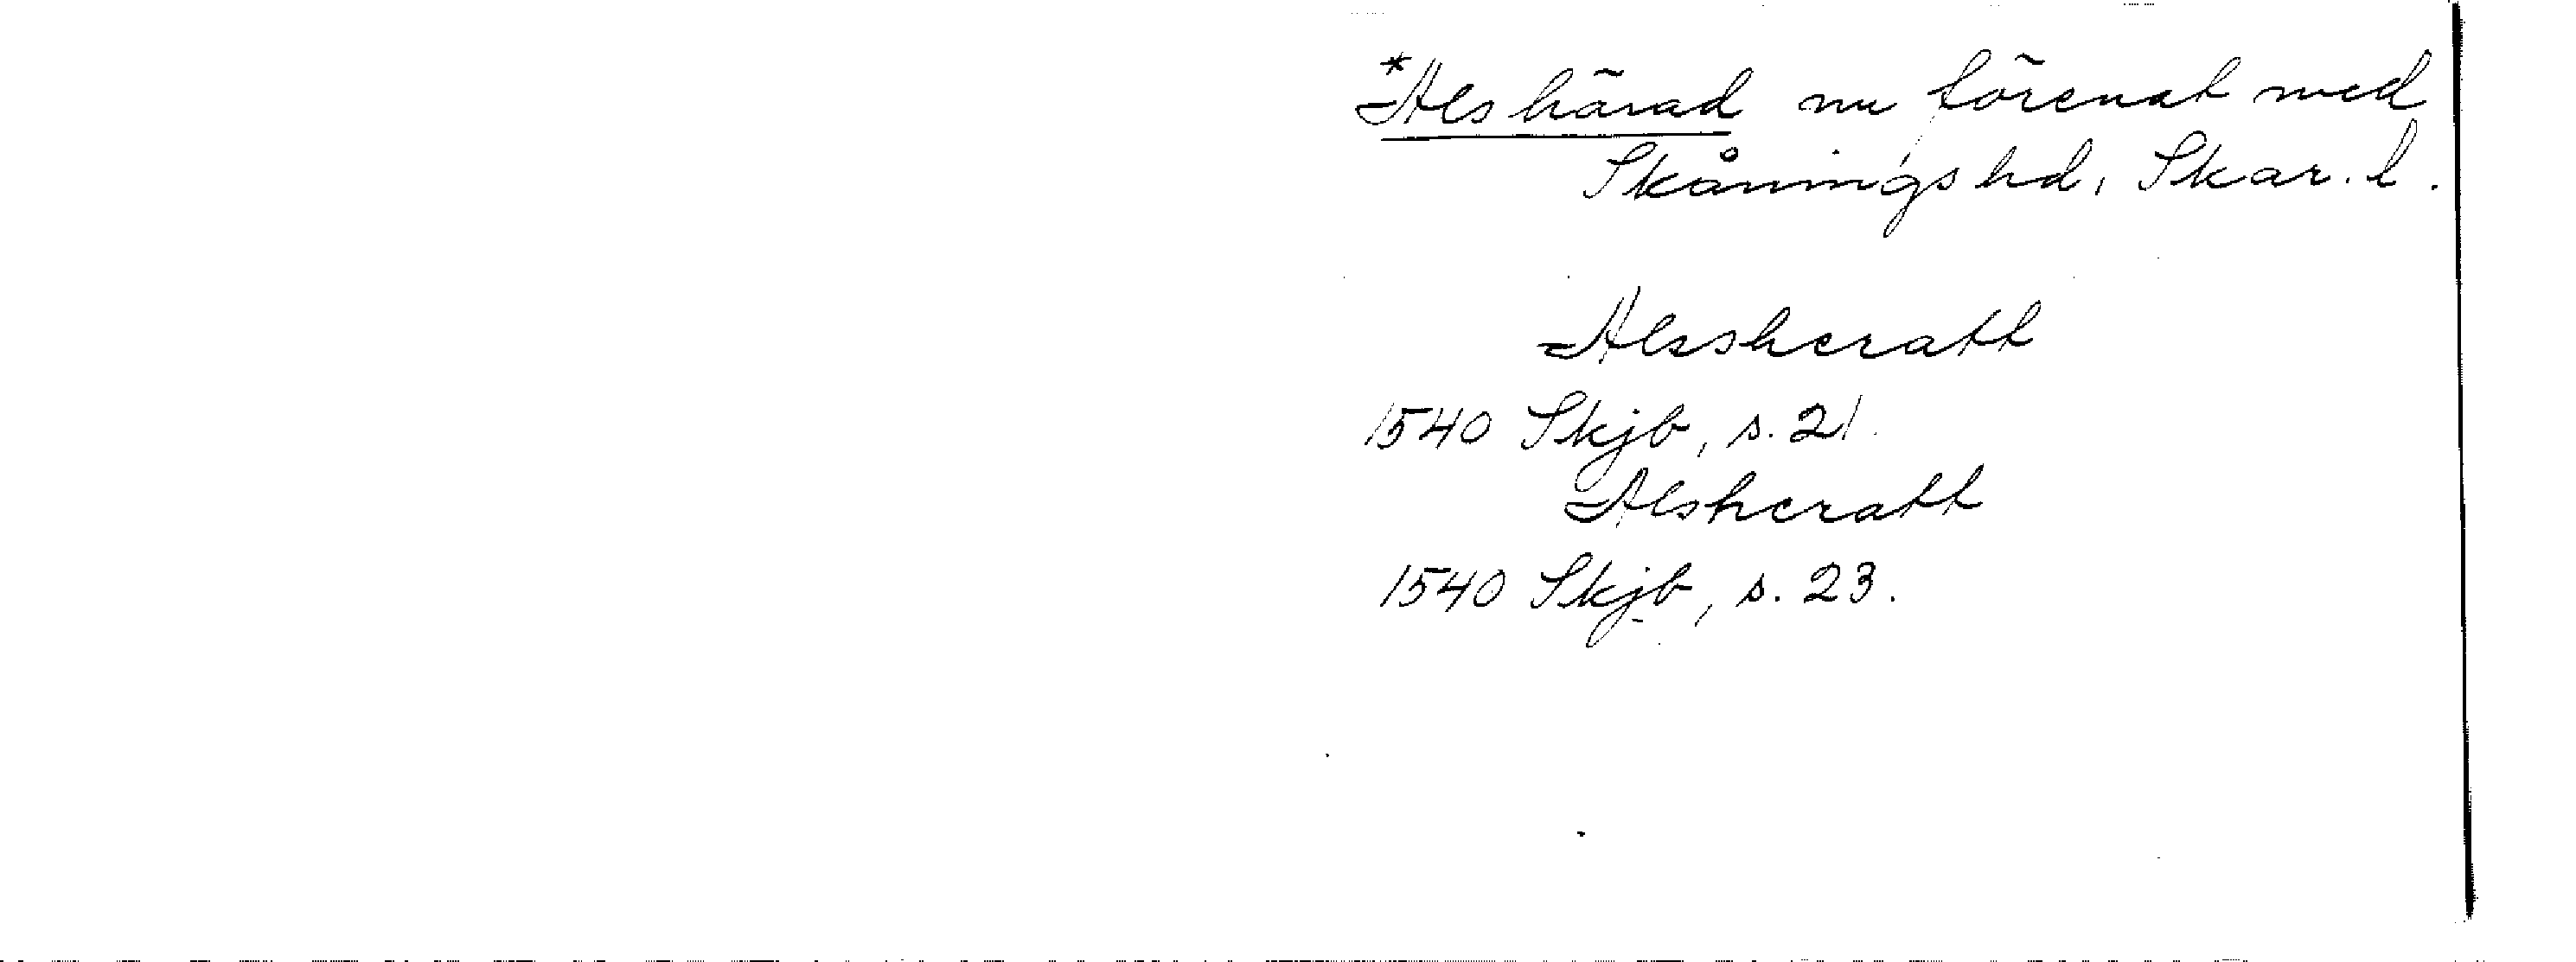 *Als härad nu förenat med
Skånings hd, Skar. l.
Alssheratt
1540 Skjb, s. 21.
Alsheratt
1540 Skjb, s. 23.